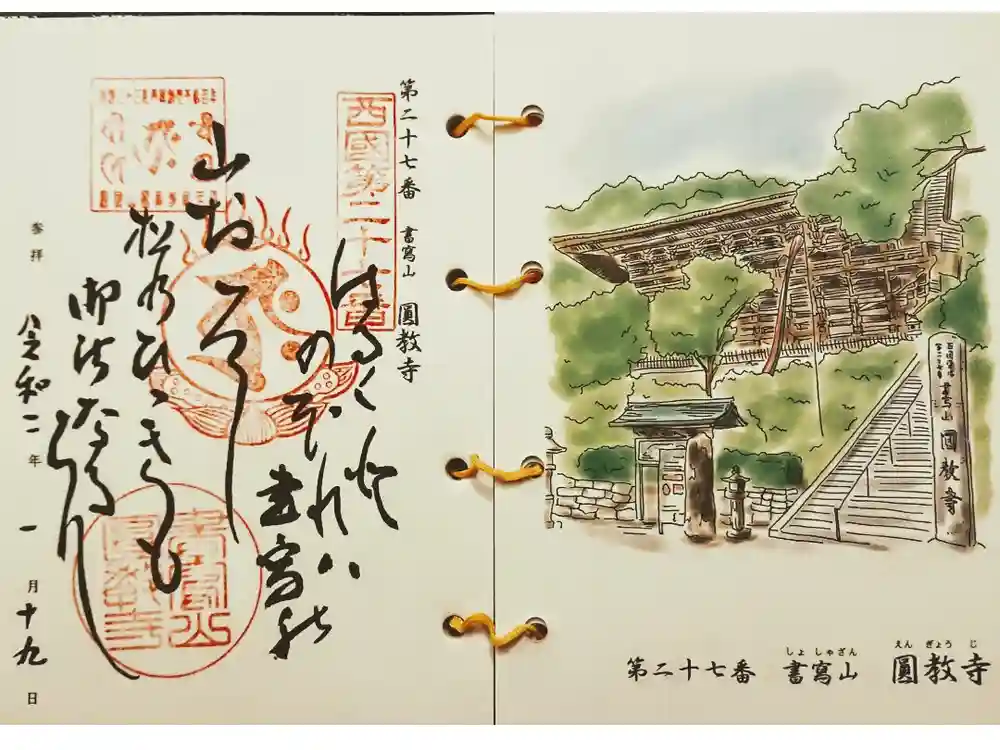 第二十七番 書寫山 圓教寺
西國第二十七番
はる〱と
のぼれハ
書寫の
山おろし
松乃ひゝきも
御法なるらん
書寫山
圓教寺
参拝 令和二年一月十九日
書寫山 圓教寺
しょしゃざん えんぎょうじ
第二十七番 書寫山 圓教寺